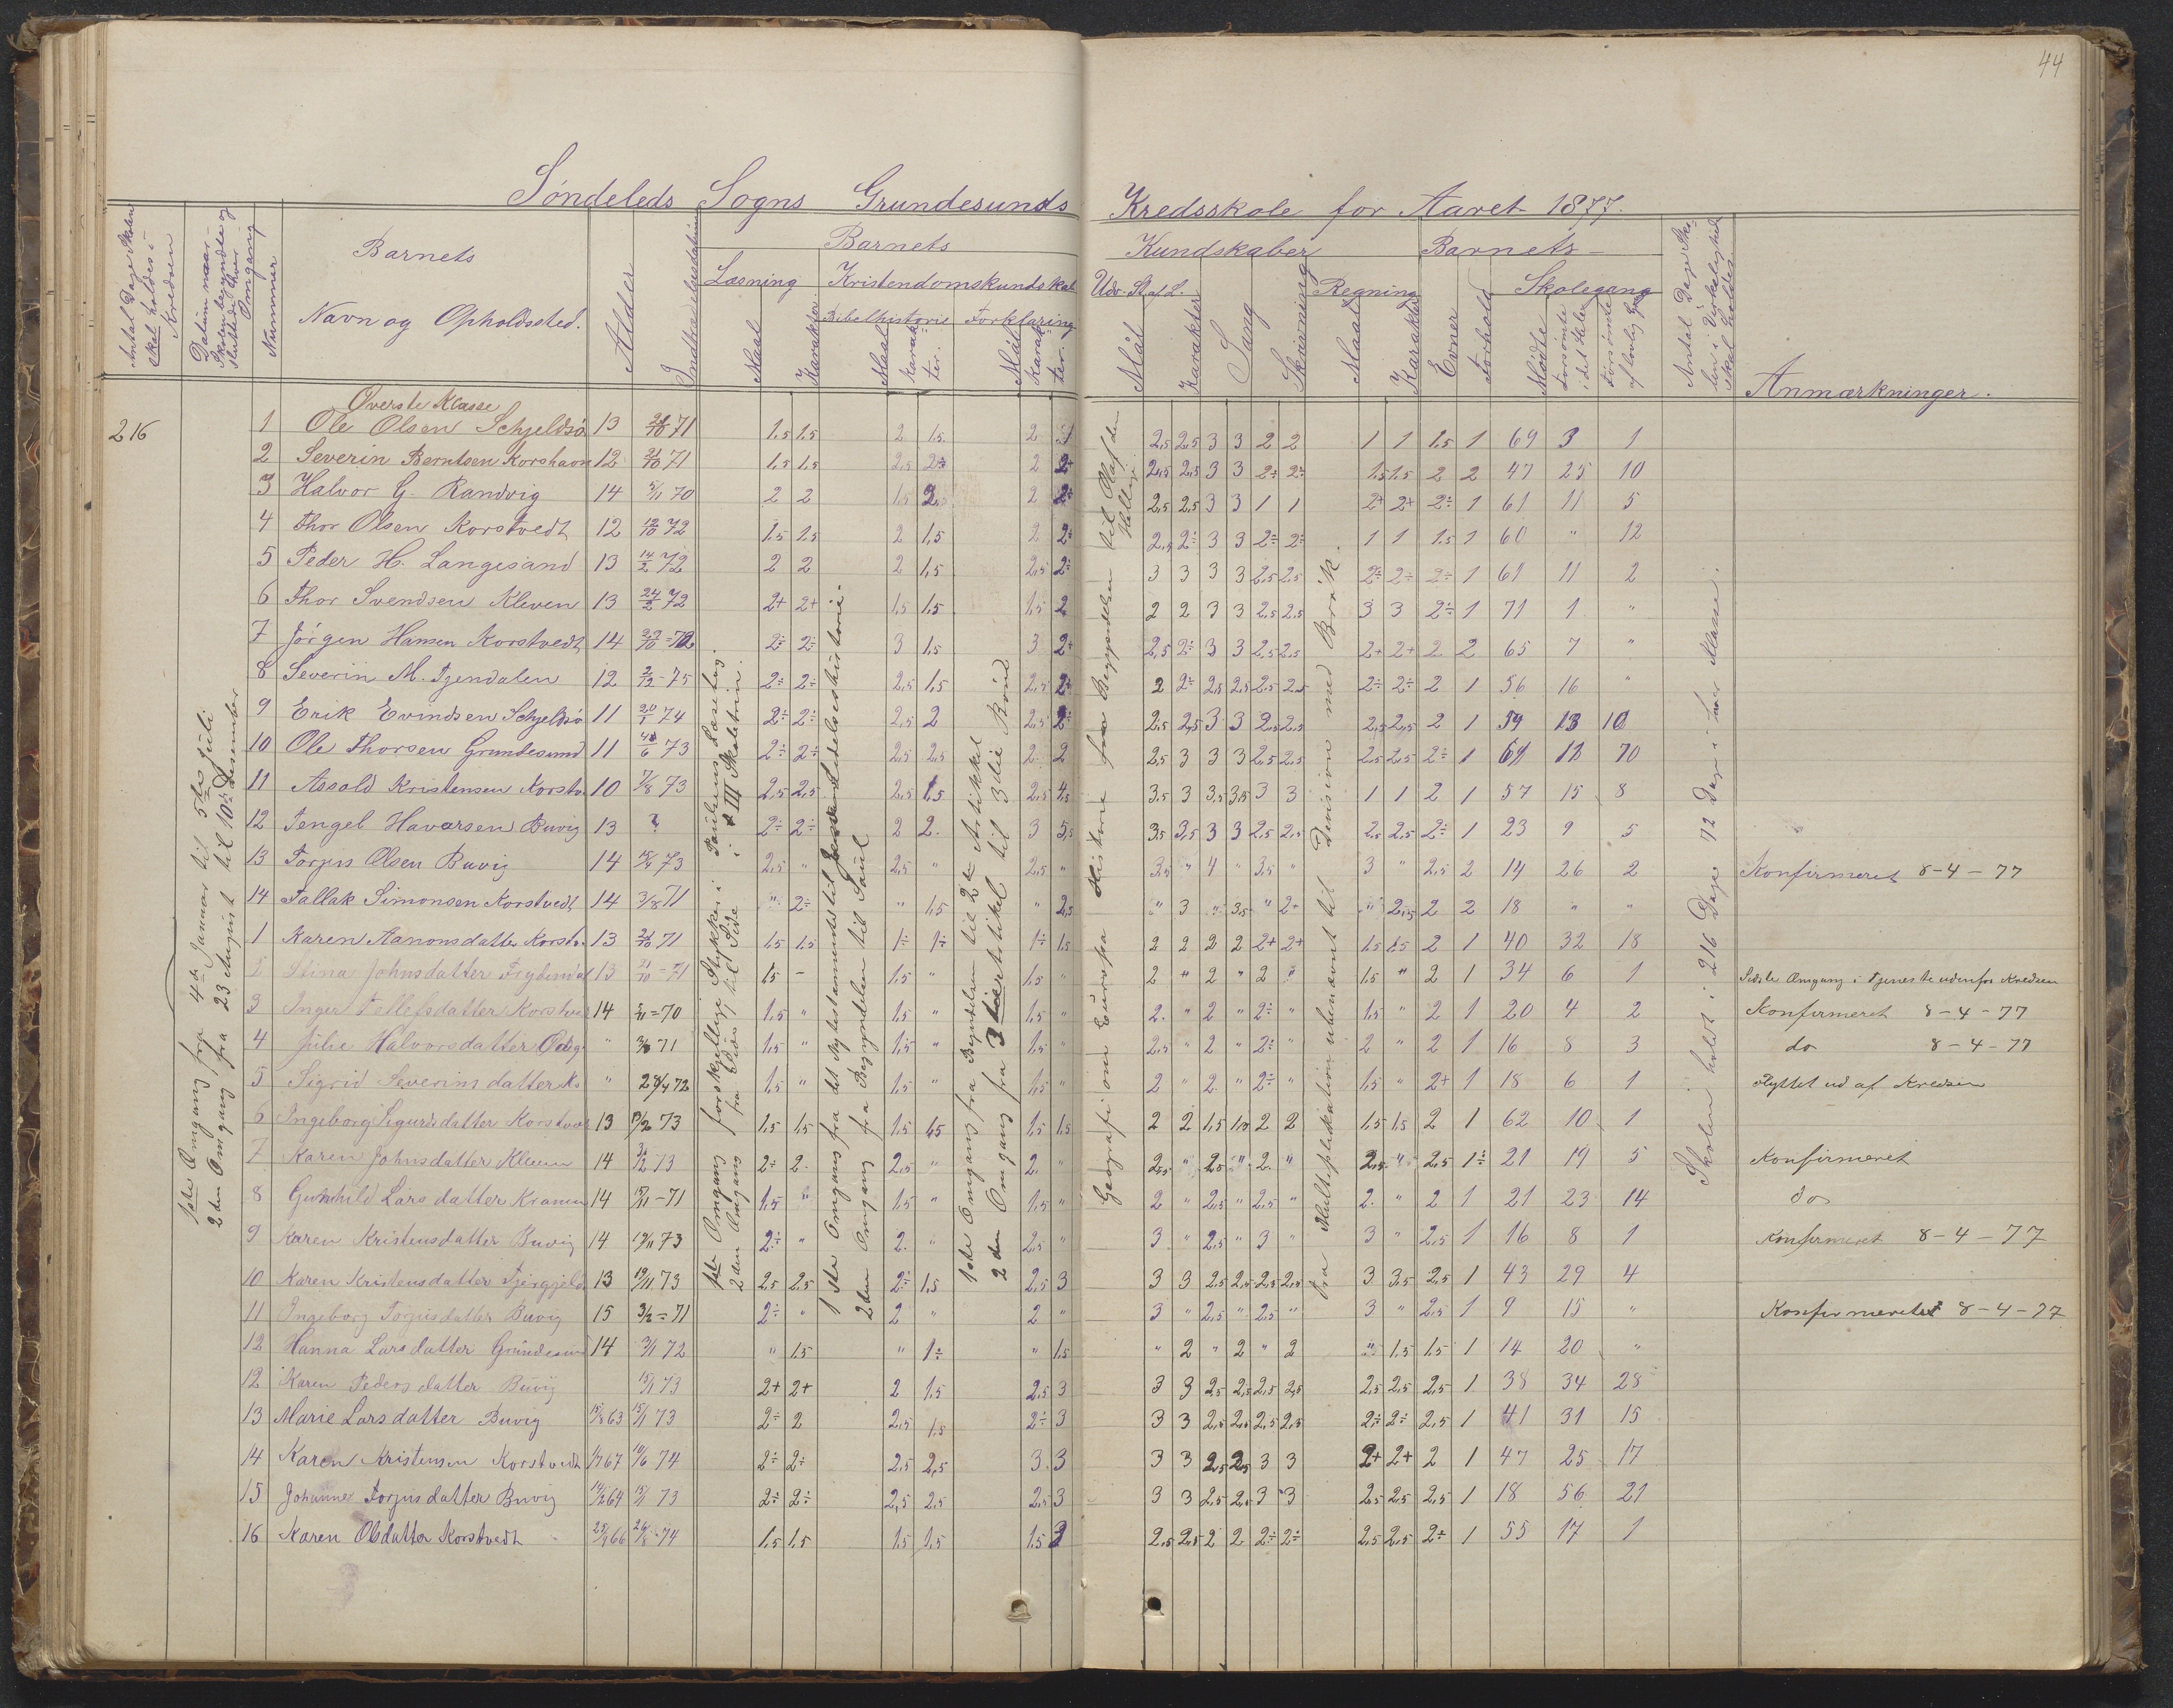 44
Søndeleds Sogns Grundesunds Kredsskole for Aaret 1877.
Antal Dage Skolen skal holdes i Kredsen
Datum naar Skolen begyndte og sluttede hver Omgang
Nummer
Barnets
Navn og Opholdssted.
Alder
Indtrædelsesdatum
Barnets Kundskaber
Læsning
Maal
Karakter
Kristendomskundskab
Bibelhistorie
Maal
Karakter.
Forklaring
Mål
Karakter.
Udv. St. af L.
Mål
Karakter
Sang
Skrivning
Regning
Maal
Karakter
Barnets
Evner
Forhold
Skolegang
Mødte
Forsømte i det Hele
Forsømte af lovlig Gr.
Antal Dage Skolen i Virkelighed skal holdes
Anmærkninger.
Øverste Klasse
216
1ste Omgang fra 4de Januar til 5te Juli
2den Omgang fra 23 August til 10de Desember
1ste Omgang forskjellige Stykker i Paulsens Læsebog.
2den Omgang fra Side til Side i III Skoletrin.
1ste Omgang fra det Nytestamente til Jesu Lidelseshistorie.
2den Omgang fra Begyndelsen til Saul
1ste Omgang fra Begyndelsen til 2den Artikkel
2den Omgang fra 3die Artikel til 3die Bønd
Geografi om Europa Historie fra Begyndelsen til Olaf den Hellige
Fra Multiplikation ubenævnt til Division med Brøk.
Skolen holdt i 216 Dage 72 Dage i hver Klasse.
1 Ole Olsen Schjeldsø 13 21/10 71 1,5 1,5 2 1,5 2 1 2,5 2,5 3 3 2 2 1 1 1,5 1 69 3 1
2 Severin Berntsen Korshavn 12 21/10 71 1,5 1,5 2,5 2÷ 2 2+ 2,5 2,5 3 3 2÷ 2÷ 1,5 1,5 2 2 47 25 10
3 Halvor G. Randvig 14 5/11 70 2 2 1,5 2,5 2 2÷ 2,5 2,5 3 3 1 1 2+ 2+ 2÷ 1 61 11 5
4 Thor Olsen Korstvedt 12 12/10 72 1,5 1,5 2 1,5 2 2+ 2,5 2÷ 3 3 2÷ 2÷ 1 1 1,5 1 60 " 12
5 Peder H. Langesand 13 14/2 72 2 2 2 1,5 2,5 2÷ 3 3 3 3 2,5 2,5 2÷ 2÷ 2÷ 1 61 11 2
6 Thor Svendsen Kleven 13 24/2 72 2+ 2+ 1,5 1,5 1,5 2 2 2 3 3 2,5 2,5 3 3 2÷ 1 71 1 "
7 Jørgen Hansen Korstvedt 14 22/10 = 72 2÷ 2÷ 3 1,5 3 2+ 2,5 2÷ 3 3 2,5 2,5 2+ 2+ 2 2 65 7 "
8 Severin M. Tjendalen 12 2/12 - 75 2÷ 2÷ 2,5 1,5 2,5 2+ 2 2÷ 2,5 2,5 2,5 2,5 2÷ 2÷ 2 1 56 16 "
9 Erik Evindsen Schjeldsø 11 20/1 74 2÷ 2÷ 2,5 2 2,5 2÷ 2,5 2,5 3 3 2,5 2,5 2,5 2,5 2 1 59 13 10
10 Ole Thorsen Grundesund 11 73 2÷ 2÷ 2,5 2,5 2 2 2,5 3 3 3 2,5 2,5 2,5 2,5 2÷ 1 12 10
11 Assald Kristensen Korstv. 10 7/8 73 2,5 2,5 2,5 1,5 2,5 4,5 3,5 3 3,5 3,5 3 3 1 1 2 1 57 15 8
12 Tengel Havorsen Buvig 13 ? 2÷ 2÷ 2 2. 3 5,5 3,5 3,5 3 3 2,5 2,5 2,5 2,5 2÷ 1 23 9 5
13 Torjus Olsen Buvig 14 15/4 73 2,5 " 2,5 " 2,5 " 3,5 " 4 " 3,5 " 3 " 2,5 2 14 26 2 Konfirmeret 8-4-77
14 Tallak Simonsen Korstvedt 14 3/8 71 " 2÷ " 1,5 " 2,5 " 3 " 3,5 " 2+ " 2,5 2 2 18 " "
1 Karen Aanonsdatter Korstv. 13 21/10 71 1,5 1,5 1÷ 1÷ 1÷ 1,5 2 2 2 2 2+ 2+ 1,5 1,5 2 1 40 32 18
2 Stina Johnsdatter 13 21/10 = 71 1,5 - 1,5 " 1,5 " 2 " 2 " 2 " 1,5 " 2 1 34 6 1 Sidste Omgang i Tjeneste udenfor Kredsen
3 Inger Tellefsdatter Korstved 14 5/11 = 70 1,5 " 1,5 " 1,5 " 2. " 2 " 2÷ " 1,5 " 2 1 20 4 2 Konfirmeret 8-4-77
4 Julie Halvorsdatter " 3/8 71 1,5 " 1,5 " 1,5 " 2,5 " 2 " 2÷ " 2 " 2 1 16 8 3 do 8-4-77
5 Sigrid Severinsdatter Ks " 28/4 72 1,5 " 1,5 " 1,5 " 2 " 2 " 2÷ " 1,5 " 2+ 1 18 6 1 Flyttet ud af Kredsen
6 Ingeborg Sigurdsdatter Korstved 13 73 1,5 1,5 1,5 1,5 1,5 1,5 2 2 1,5 1,5 2 2 1,5 1,5 2 1 62 10 1
7 Karen Johnsdatter Kleven 14 73 2÷ 2. 2,5 " 2. " 2,5 " 2,5 " 2. " 2,5 " 2,5 1÷ 21 19 5 Konfirmeret
8 Gunhild Larsdatter Kranen 14 15/11 - 71 1,5 " 1,5 " 1,5 " 2 " 2,5 " 2,5 " 2. " 2 1 21 23 14 do
9 Karen Kristensdatter Buvig 14 19/11 73 2÷ " 2. " 2,5 " 3 " 2,5 " 3 " 3 " 2,5 1 16 8 1 Konfirmeret 8-4-77
10 Karen Kristensdatter 13 19/11 73 2,5 2,5 2÷ 1,5 2,5 3 3 3 2,5 2,5 2,5 2,5 3 3,5 2,5 1 43 29 4
11 Ingeborg Torjusdatter Buvig 15 3/2 = 71 2÷ " 2 " 2 " 3 " 2,5 " 2,5 " 3 " 2,5 1 9 15 " Konfirmeret 8-4-77
12 Hanna Larsdatter Grundesun 14 3/1 72 " 1,5 " 1÷ " 1,5 " 2 " 2 " 2 " 1,5 1,5 1 14 20 "
12 Karen Pedersdatter Buvig 15/1 73 2+ 2+ 2 1,5 2,5 3 3 3 2,5 2,5 2,5 2,5 2,5 2,5 2,5 1 38 34 28
13 Marie Larsdatter Buvig 15/8 63 15/1 73 2÷ 2 2,5 1,5 2÷ 3 3 3 2,5 2,5 2,5 2,5 2÷ 2÷ 2,5 1 41 31 15
14 Karen Kristensen Korstvedt 1/7 67 10/6 74 2÷ 2÷ 2,5 2,5 3. 3 3 3 2,5 2,5 3 3 2+ 2+ 2 1 47 25 17
15 Johanne Torjusdatter Buvig 14/2 64 15/1 73 2÷ 2÷ 2,5 2,5 2,5 3 3 3 2,5 2,5 3 3 2,5 2,5 2,5 1 18 56 21
16 Karen Olsdatter Korstvedt 25/9 66 26/8 - 74 1,5 1,5 1,5 1,5 1,5 3 2,5 2,5 2 2 2÷ 2÷ 2,5 2,5 2÷ 1 55 17 1